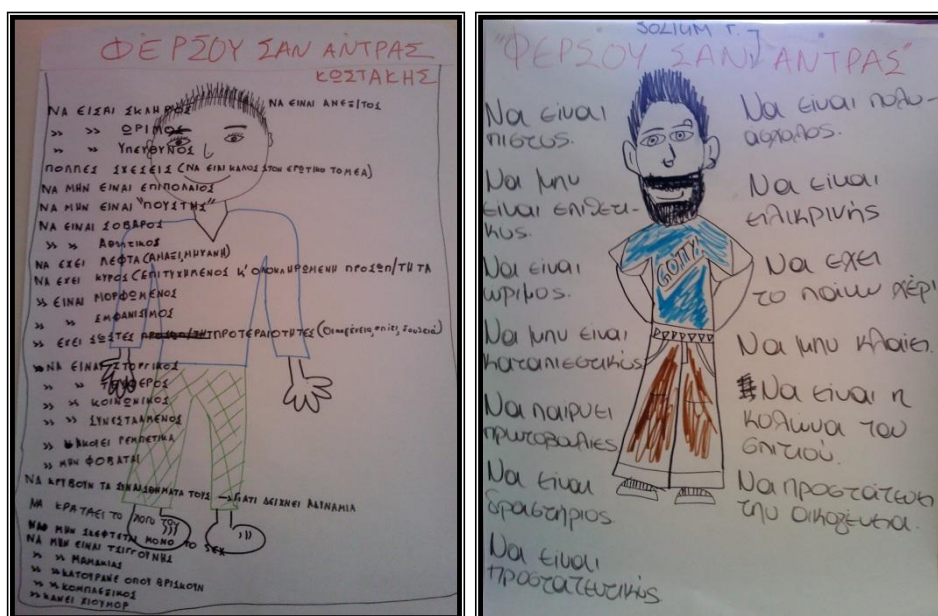 ΦΕΡΣΟΥ ΣΑΝ ΑΝΤΡΑΣ
ΚΩΣΤΑΚΗΣ
ΝΑ ΕΙΣΑΙ ΣΚΛΗΡΟΣ
ΝΑ ΕΙΝΑΙ ΑΝΕΞ/ΤΟΣ
>> >> ΩΡΙΜΟΣ
>> >> ΥΠΕΥΘΥΝΟΣ
ΠΟΛΛΕΣ ΣΧΕΣΕΙΣ (ΝΑ ΕΙΝΑΙ ΚΑΛΟΣ ΣΤΟΝ ΕΡΩΤΙΚΟ ΤΟΜΕΑ)
ΝΑ ΜΗΝ ΕΙΝΑΙ ΕΠΙΠΟΛΑΙΟΣ
ΝΑ ΜΗΝ ΕΙΝΑΙ "ΠΟΥΣΤΗΣ"
ΝΑ ΕΙΝΑΙ ΣΟΒΑΡΟΣ
>> >> ΑΘΛΗΤΙΚΟΣ
ΝΑ ΕΧΕΙ ΛΕΦΤΑ (ΑΜΑΞΙ, ΜΗΧΑΝΗ)
ΝΑ ΕΧΕΙ ΚΥΡΟΣ (ΕΠΙΤΥΧΗΜΕΝΟΣ Κ' ΟΛΟΚΛΗΡΩΜΕΝΗ ΠΡΟΣΩΠ/ΤΗΤΑ
>> ΕΙΝΑΙ ΜΟΡΦΩΜΕΝΟΣ
>> >> ΕΜΦΑΝΙΣΙΜΟΣ
>> ΕΧΕΙ ΣΩΣΤΕΣ ΠΡΟΤΕΡΑΙΟΤΗΤΕΣ (Οικογένεια, σπίτι, δουλειά)
>> ΝΑ ΕΙΝΑΙ ΣΤΟΡΓΙΚΟΣ
>> >> ΤΡΥΦΕΡΟΣ
>> >> ΚΟΙΝΩΝΙΚΟΣ
>> >> ΣΥΝΕΣΤΑΛΜΕΝΟΣ
>> ΑΚΟΥΕΙ ΡΕΜΠΕΤΙΚΑ
>> ΜΗΝ ΦΟΒΑΤΑΙ
ΝΑ ΚΡΥΒΟΥΝ ΤΑ ΣΥΝΑΙΣΘΗΜΑΤΑ ΤΟΥΣ → ΓΙΑΤΙ ΔΕΙΧΝΕΙ ΑΔΥΝΑΜΙΑ
ΝΑ ΚΡΑΤΑΕΙ ΤΟ ΛΟΓΟ ΤΟΥ
ΝΑ ΜΗΝ ΣΚΕΦΤΕΤΑΙ ΜΟΝΟ ΤΟ SEX
ΝΑ ΜΗΝ ΕΙΝΑΙ ΤΣΙΓΓΟΥΝΗΣ
>> >> ΜΑΜΑΚΙΑΣ
>> >> ΚΑΤΟΥΡΑΝΕ ΟΠΟΥ ΒΡΙΣΚΟΥΝ
>> >> ΚΟΜΠΛΕΞΙΚΟΣ
>> ΚΑΝΕΙ ΧΙΟΥΜΟΡ
"ΦΕΡΣΟΥ ΣΑΝ ΑΝΤΡΑΣ"
Να είναι
πιστός.
Να μην
είναι επιθετι-
κός.
Να είναι
ώριμος.
Να μην είναι
καταπιεστικός
Να παίρνει
πρωτοβουλίες.
Να είναι
δραστήριος.
Να είναι
προστατευτικός
Να είναι πολυ-
άσχολος.
Να είναι
ειλικρινής
Να έχει
το πάνω χέρι
Να μην κλαίει.
Να είναι η
κολώνα του
σπιτιού.
Να προστατεύει
την οικογένεια.